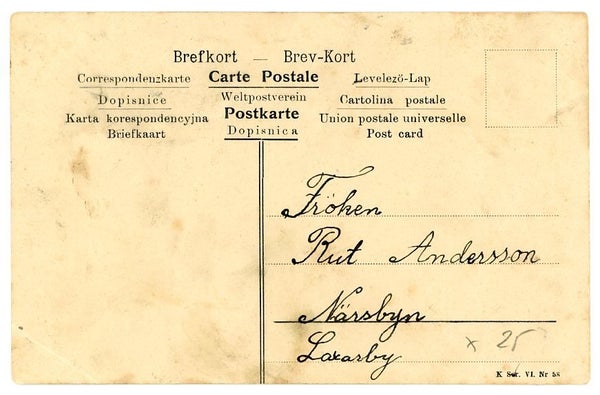 Brefkort — Brev-Kort
Correspondenzkarte Carte Postale Levelező-Lap
Dopisnice Weltpostverein Cartolina postale
Karta korespondencyjna Postkarte Union postale universelle
Briefkaart Dopisnica Post card
Fröken
Rut Andersson
Närsbyn
Laxarby
x 25
K Ser. VI. Nr 58